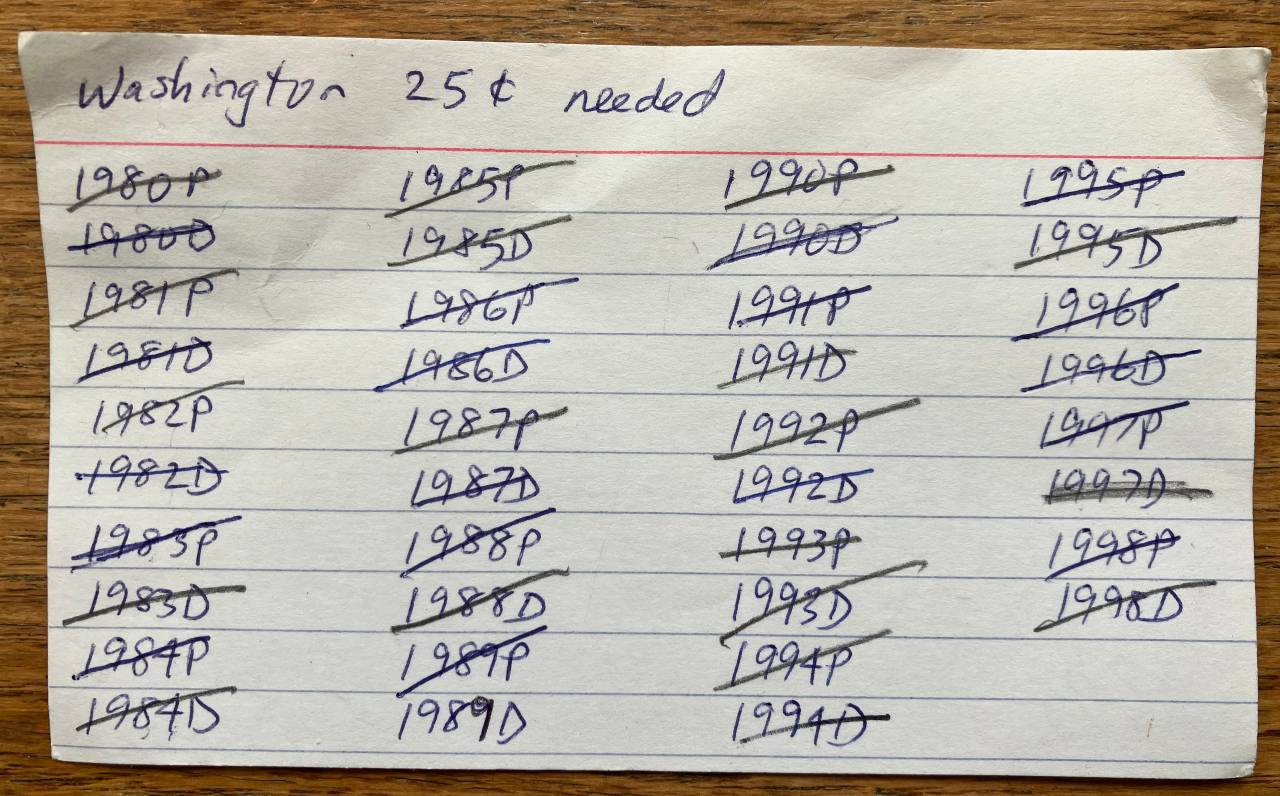 Washington 25¢ needed
1980P 1985P 1990P 1995P
1980D 1985D 1990D 1995D
1981P 1986P 1991P 1996P
1981D 1986D 1991D 1996D
1982P 1987P 1992P 1997P
1982D 1987D 1992D 1997D
1983P 1988P 1993P 1998P
1983D 1988D 1993D 1998D
1984P 1989P 1994P
1984D 1989D 1994D